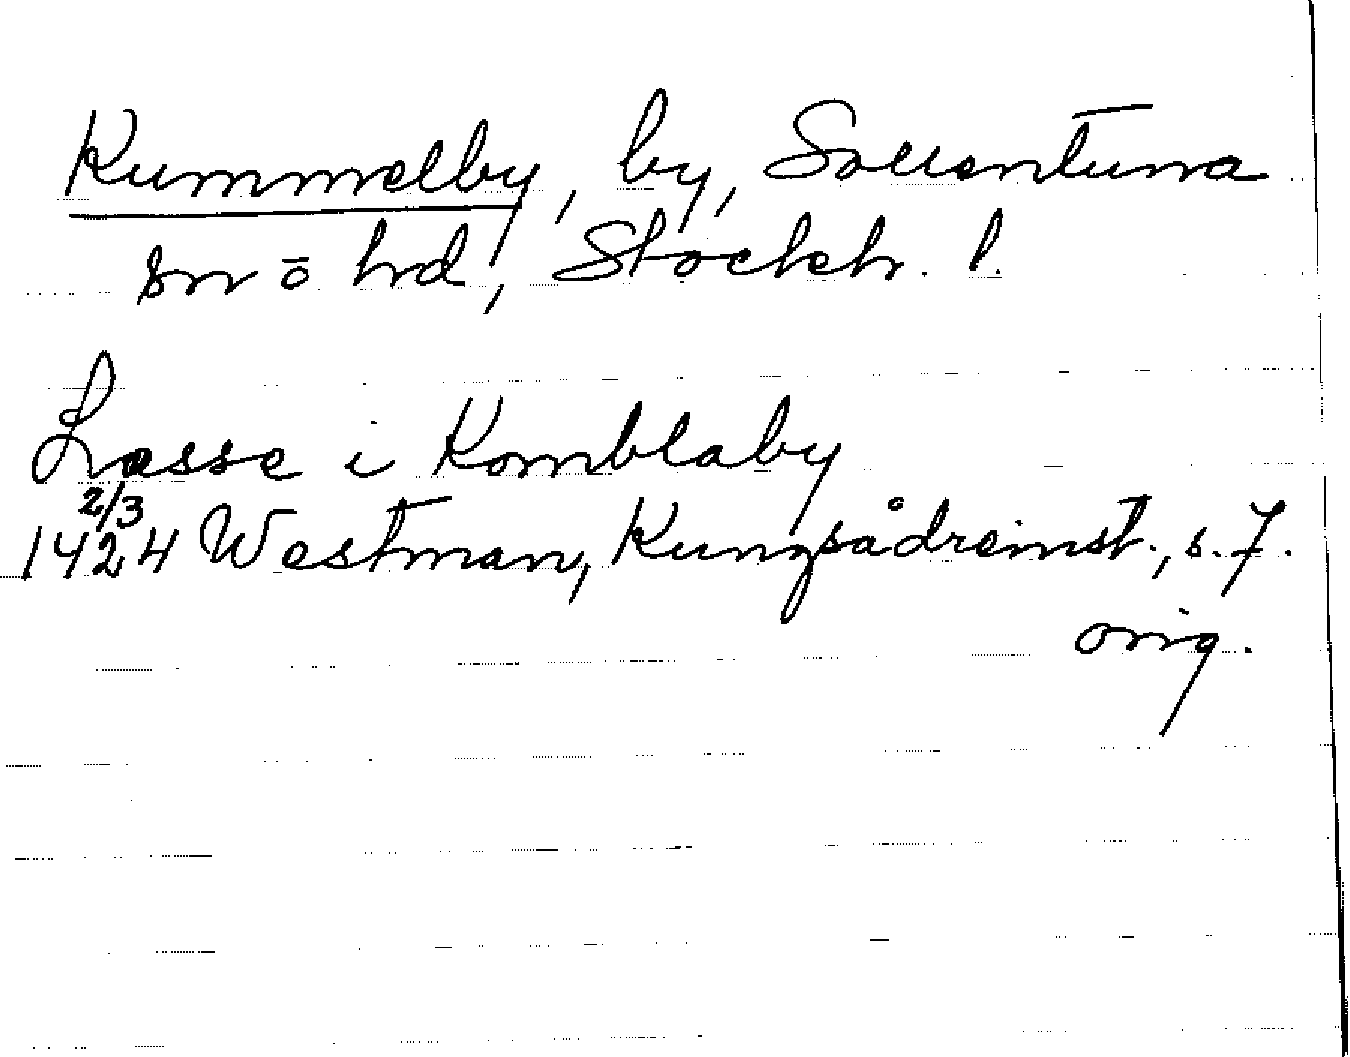 Kummelby, by, Sollentuna
sn o hd, Stockh. l.
Lasse i Komblaby
2/3
1424 Westman, Kungsådreinst., s. 7.
orig.